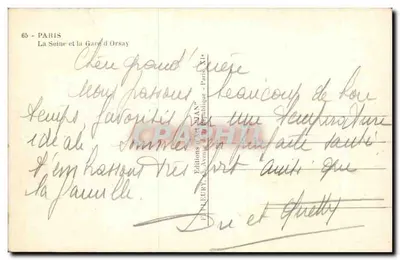 65 - PARIS
La Seine et la Gare d'Orsay
Chère grand'mère
Nous passons beaucoup de bon
temps, favorisés par une température
idéale sommes en parfaite santé
t'embrassons très fort ainsi que
ta famille.
et